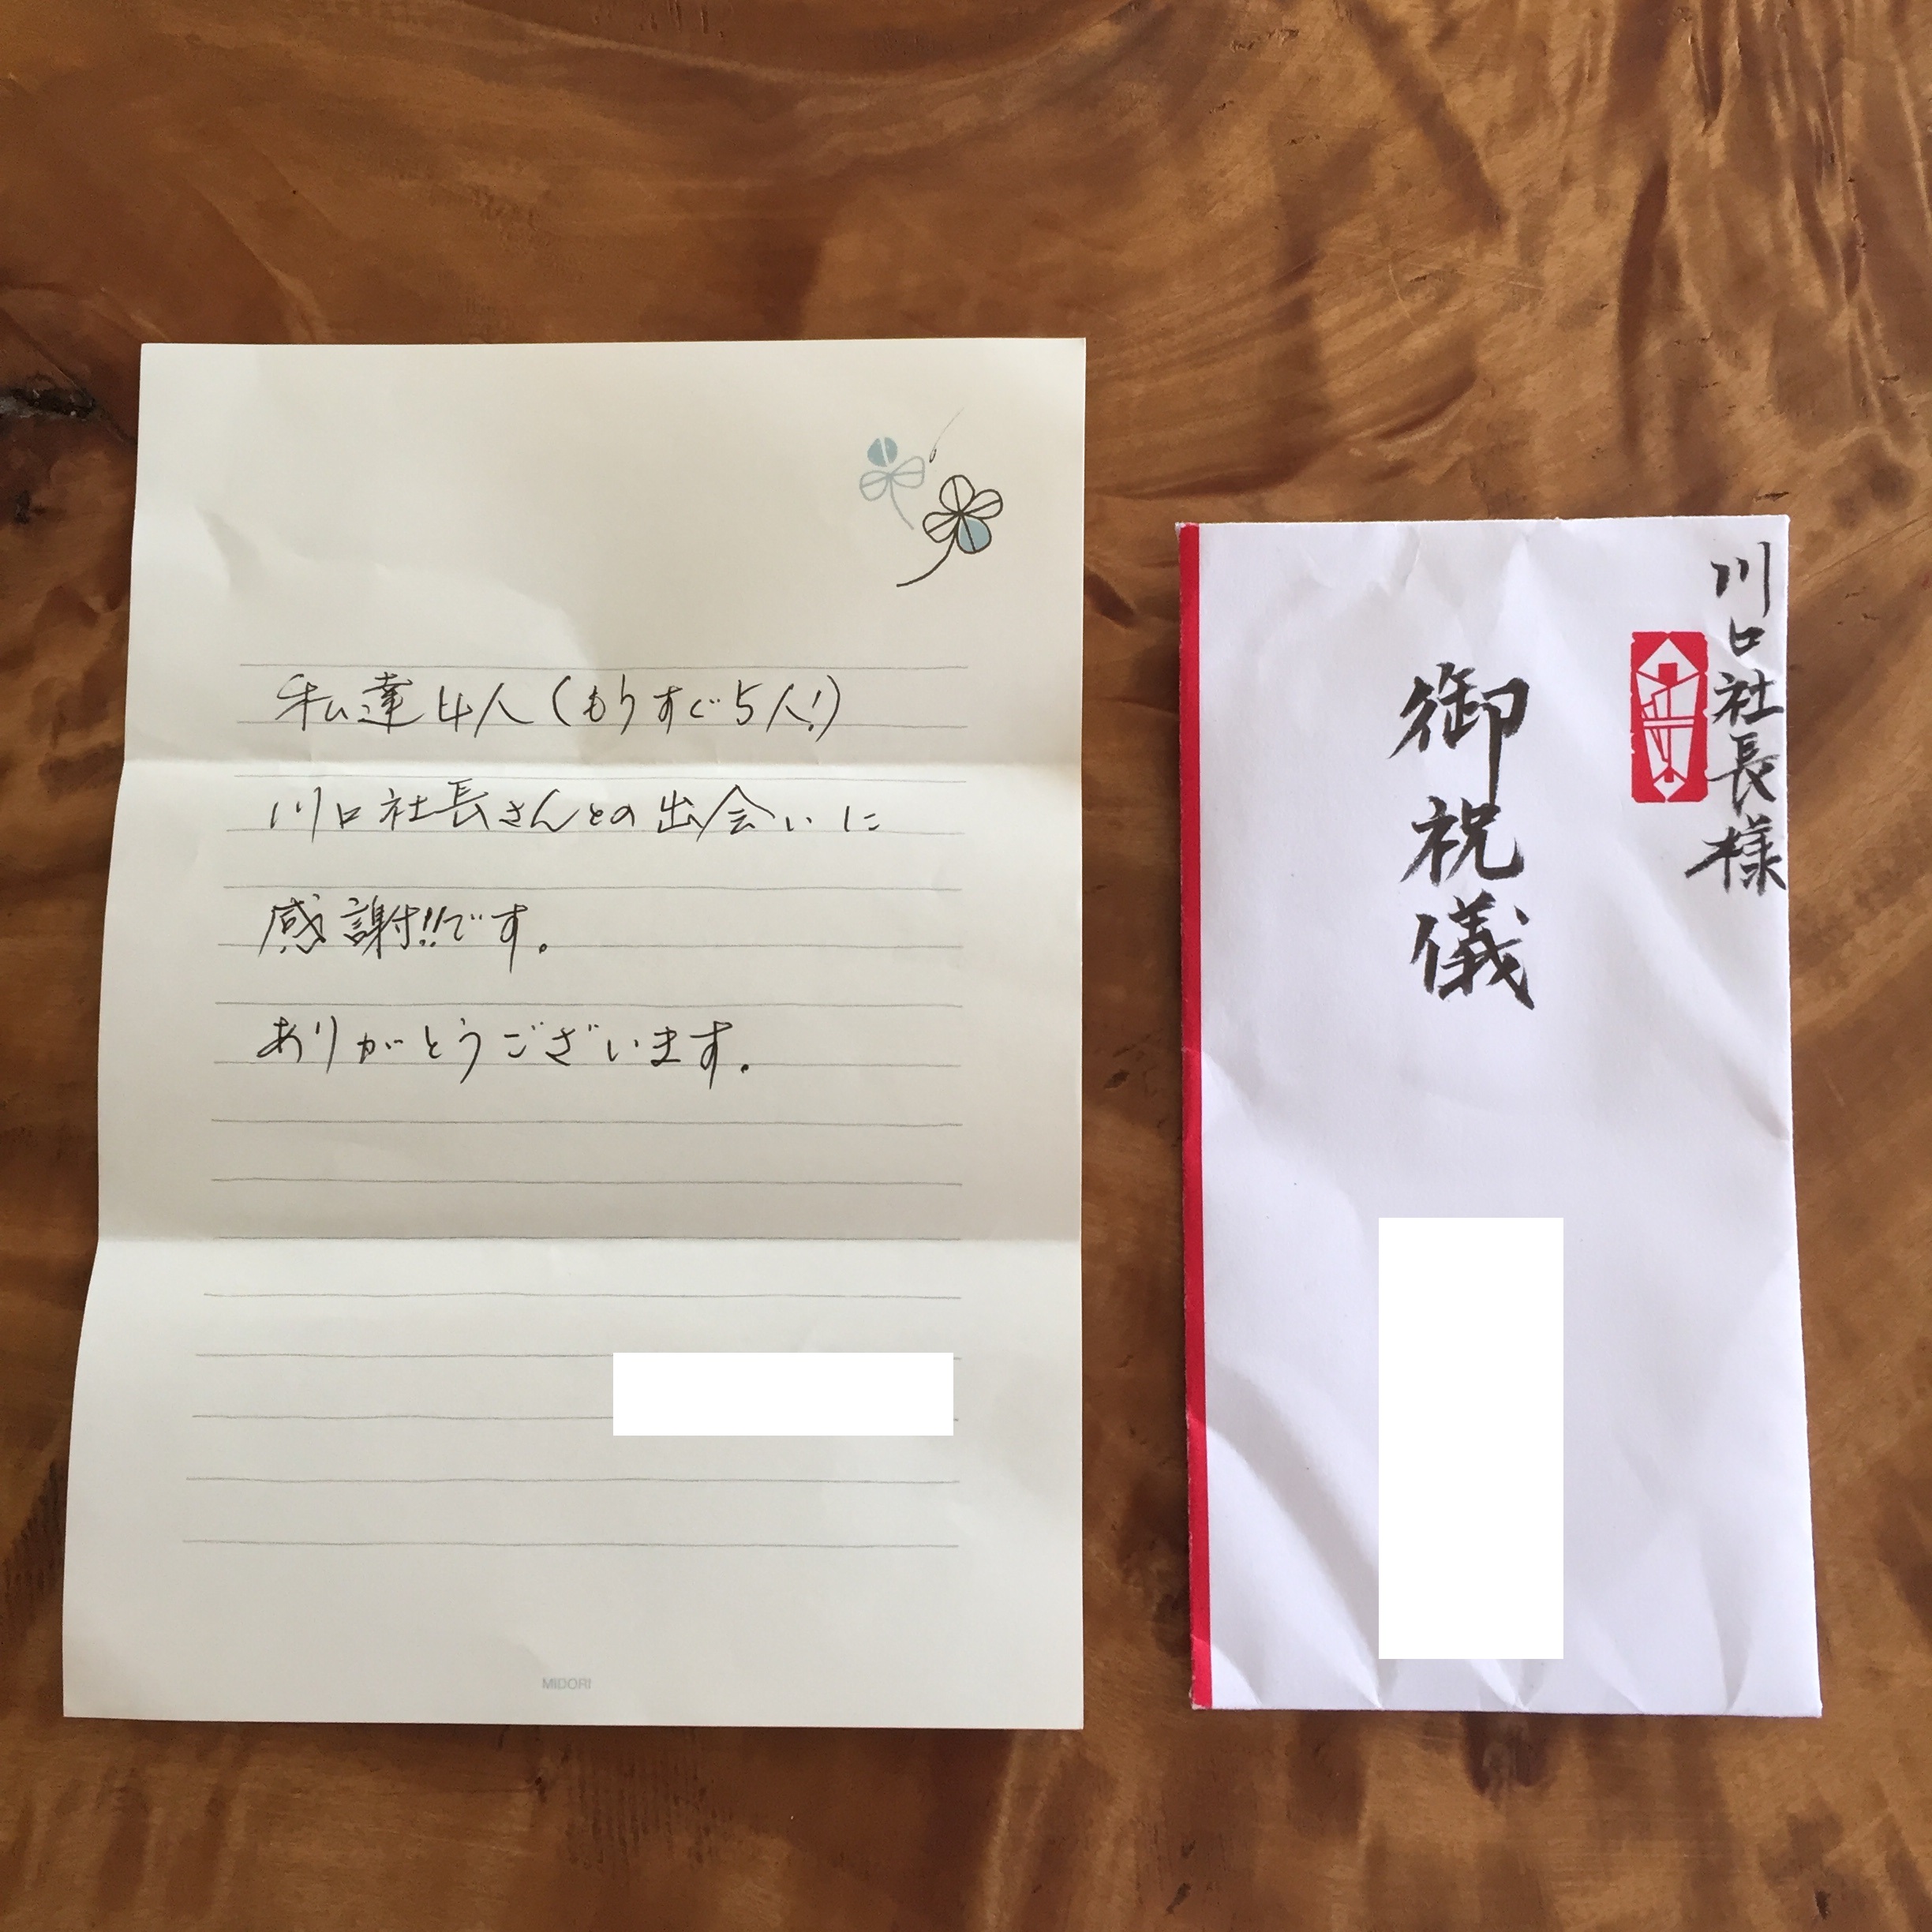 私達4人(もうすぐ5人!)
川口社長さんとの出会いに
感謝!!です。
ありがとうございます。
MIDORI
川口社長様
御祝儀